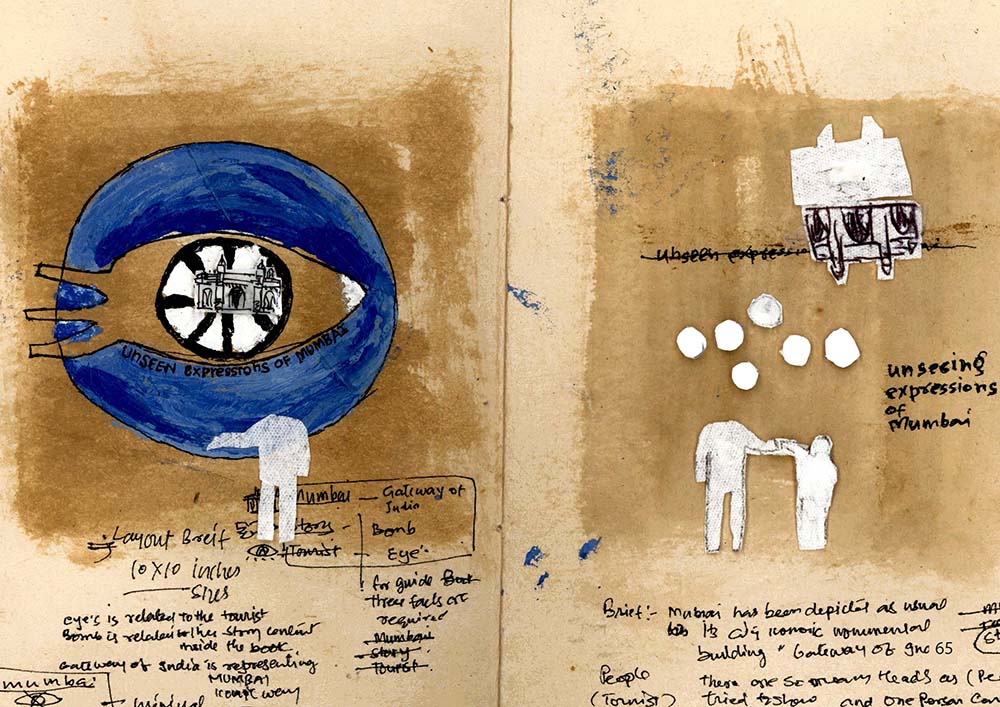 UNSEEN EXPRESSIONS OF MUMBAI
Mumbai — Gateway of
India
Story — Bomb
Tourist — Eye
Layout Breif
10 X 10 inches
Sizes
for guide Book
three facts are
required
Mumbai
Story
Tourist
eye's is related to the tourist
Bomb is related to the story content
inside the book
Gateway of India is representing
MUMBAI
way
mumbai
minimal
unseen expressio
unseeing
expressions
of
Mumbai
Brief:- Mumbai has been depicted as usual
its iconic monumental
building "Gateway of
People
(Tourist)
there are so many Heads as
tried to show and one Person